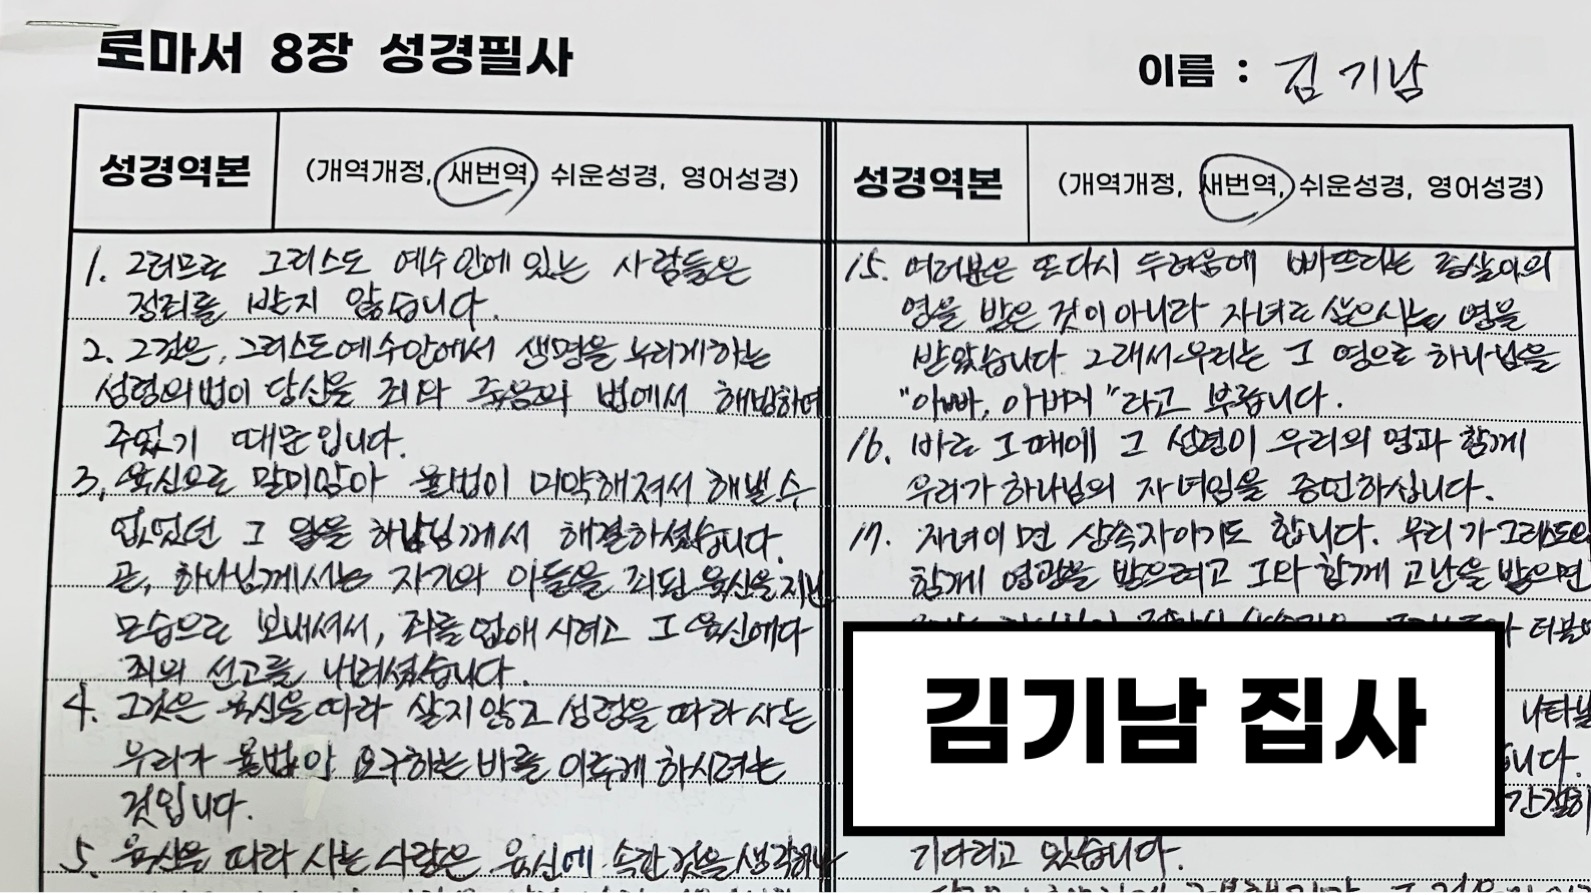 로마서 8장 성경필사
이름 : 김기남
성경역본 (개역개정, 새번역, 쉬운성경, 영어성경)
1. 그러므로 그리스도 예수 안에 있는 사람들은
정죄를 받지 않습니다.
2. 그것은, 그리스도 예수 안에서 생명을 누리게하는
성령의 법이 당신을 죄와 죽음의 법에서 해방하여
주었기 때문입니다.
3. 육신으로 말미암아 율법이 미약해져서 해낼 수
없었던 그 일을 하나님께서 해결하셨습니다.
곧, 하나님께서는 자기의 아들을 죄된 육신을 지닌
모습으로 보내셔서, 죄를 없애시려고 그 육신에다
죄의 선고를 내리셨습니다.
4. 그것은 육신을 따라 살지 않고 성령을 따라 사는
우리가 율법이 요구하는 바를 이루게 하시려는
것입니다.
5. 육신을 따라 사는 사람은 육신에 속한 것을 생각하나
성경역본 (개역개정, 새번역, 쉬운성경, 영어성경)
15. 여러분은 또다시 두려움에 빠뜨리는 종살이의
영을 받은 것이 아니라 자녀로 삼으시는 영을
받았습니다. 그래서 우리는 그 영으로 하나님을
"아빠, 아버지"라고 부릅니다.
16. 바로 그 때에 그 성령이 우리의 영과 함께
우리가 하나님의 자녀임을 증언하십니다.
17. 자녀이면 상속자이기도 합니다. 우리가 그리스도와
함께 영광을 받으려고 그와 함께 고난을 받으면
더불어
나타날
습니다.
간절히
기다리고 있습니다.
김기남 집사